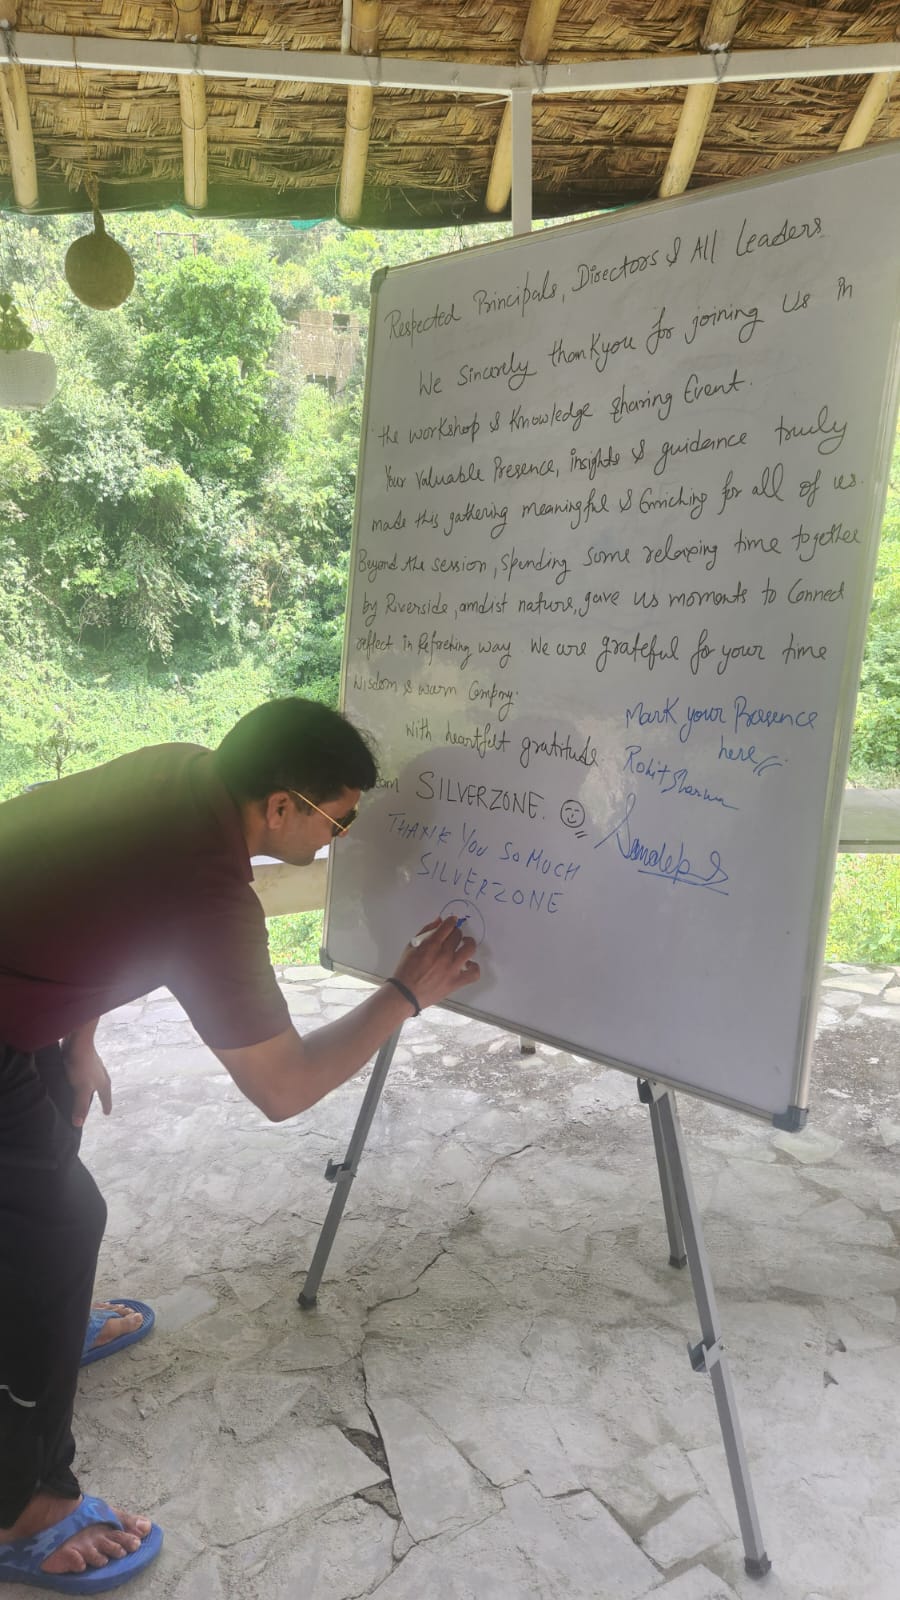 Respected Principals, Directors & All Leaders
We Sincerely thankyou for joining Us in
the workshop & Knowledge Sharing Event.
Your Valuable Presence, insights & guidance truly
made this gathering meaningful & Enriching for all of us.
Beyond the session, Spending some relaxing time together
by Riverside, amdist nature, gave us moments to Connect
reflect in Refreching way. We are grateful for your time
Wisdom & warm Compny.
With heartfelt gratitude
SILVERZONE.
Mark your Presence
here
Rohit Sharma
Sandeep
THANK YOU SO MUCH
SILVERZONE